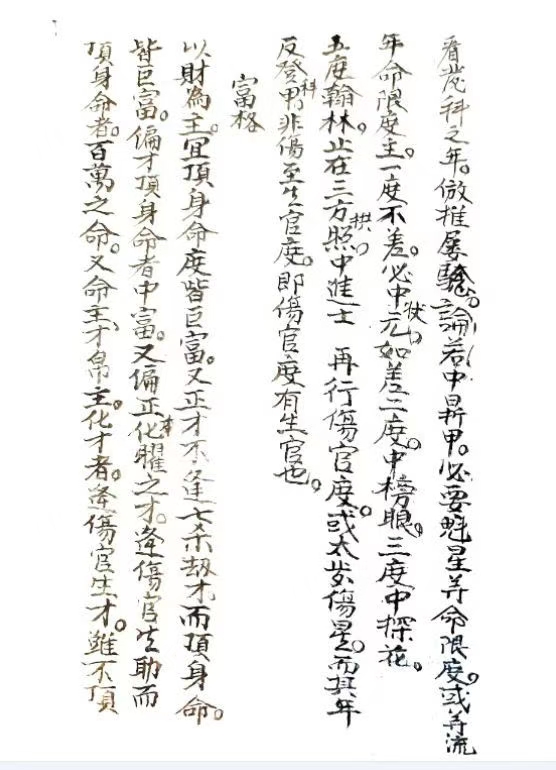 看茂科之年。倣推屡驗。論若中鼎甲。必要魁星并命限度。或并流
年命限度主。一度不差。必中状元。如差二度。中榜眼。三度中探花。
五度翰林。止在三方拱照中進士　再行傷官度。或太岁傷星。而其年
反登科甲。非傷至生官度。即傷官度有生官也。
富格
以財為主。宜頂身命度皆巨富。又正才不逢七杀劫才而頂身命。
皆巨富。偏才頂身命者中富。又偏正才化曜之才。逢傷官生助而
頂身命者。百萬之命。又命主才帛主。化才者。逢傷官生才。雖不頂